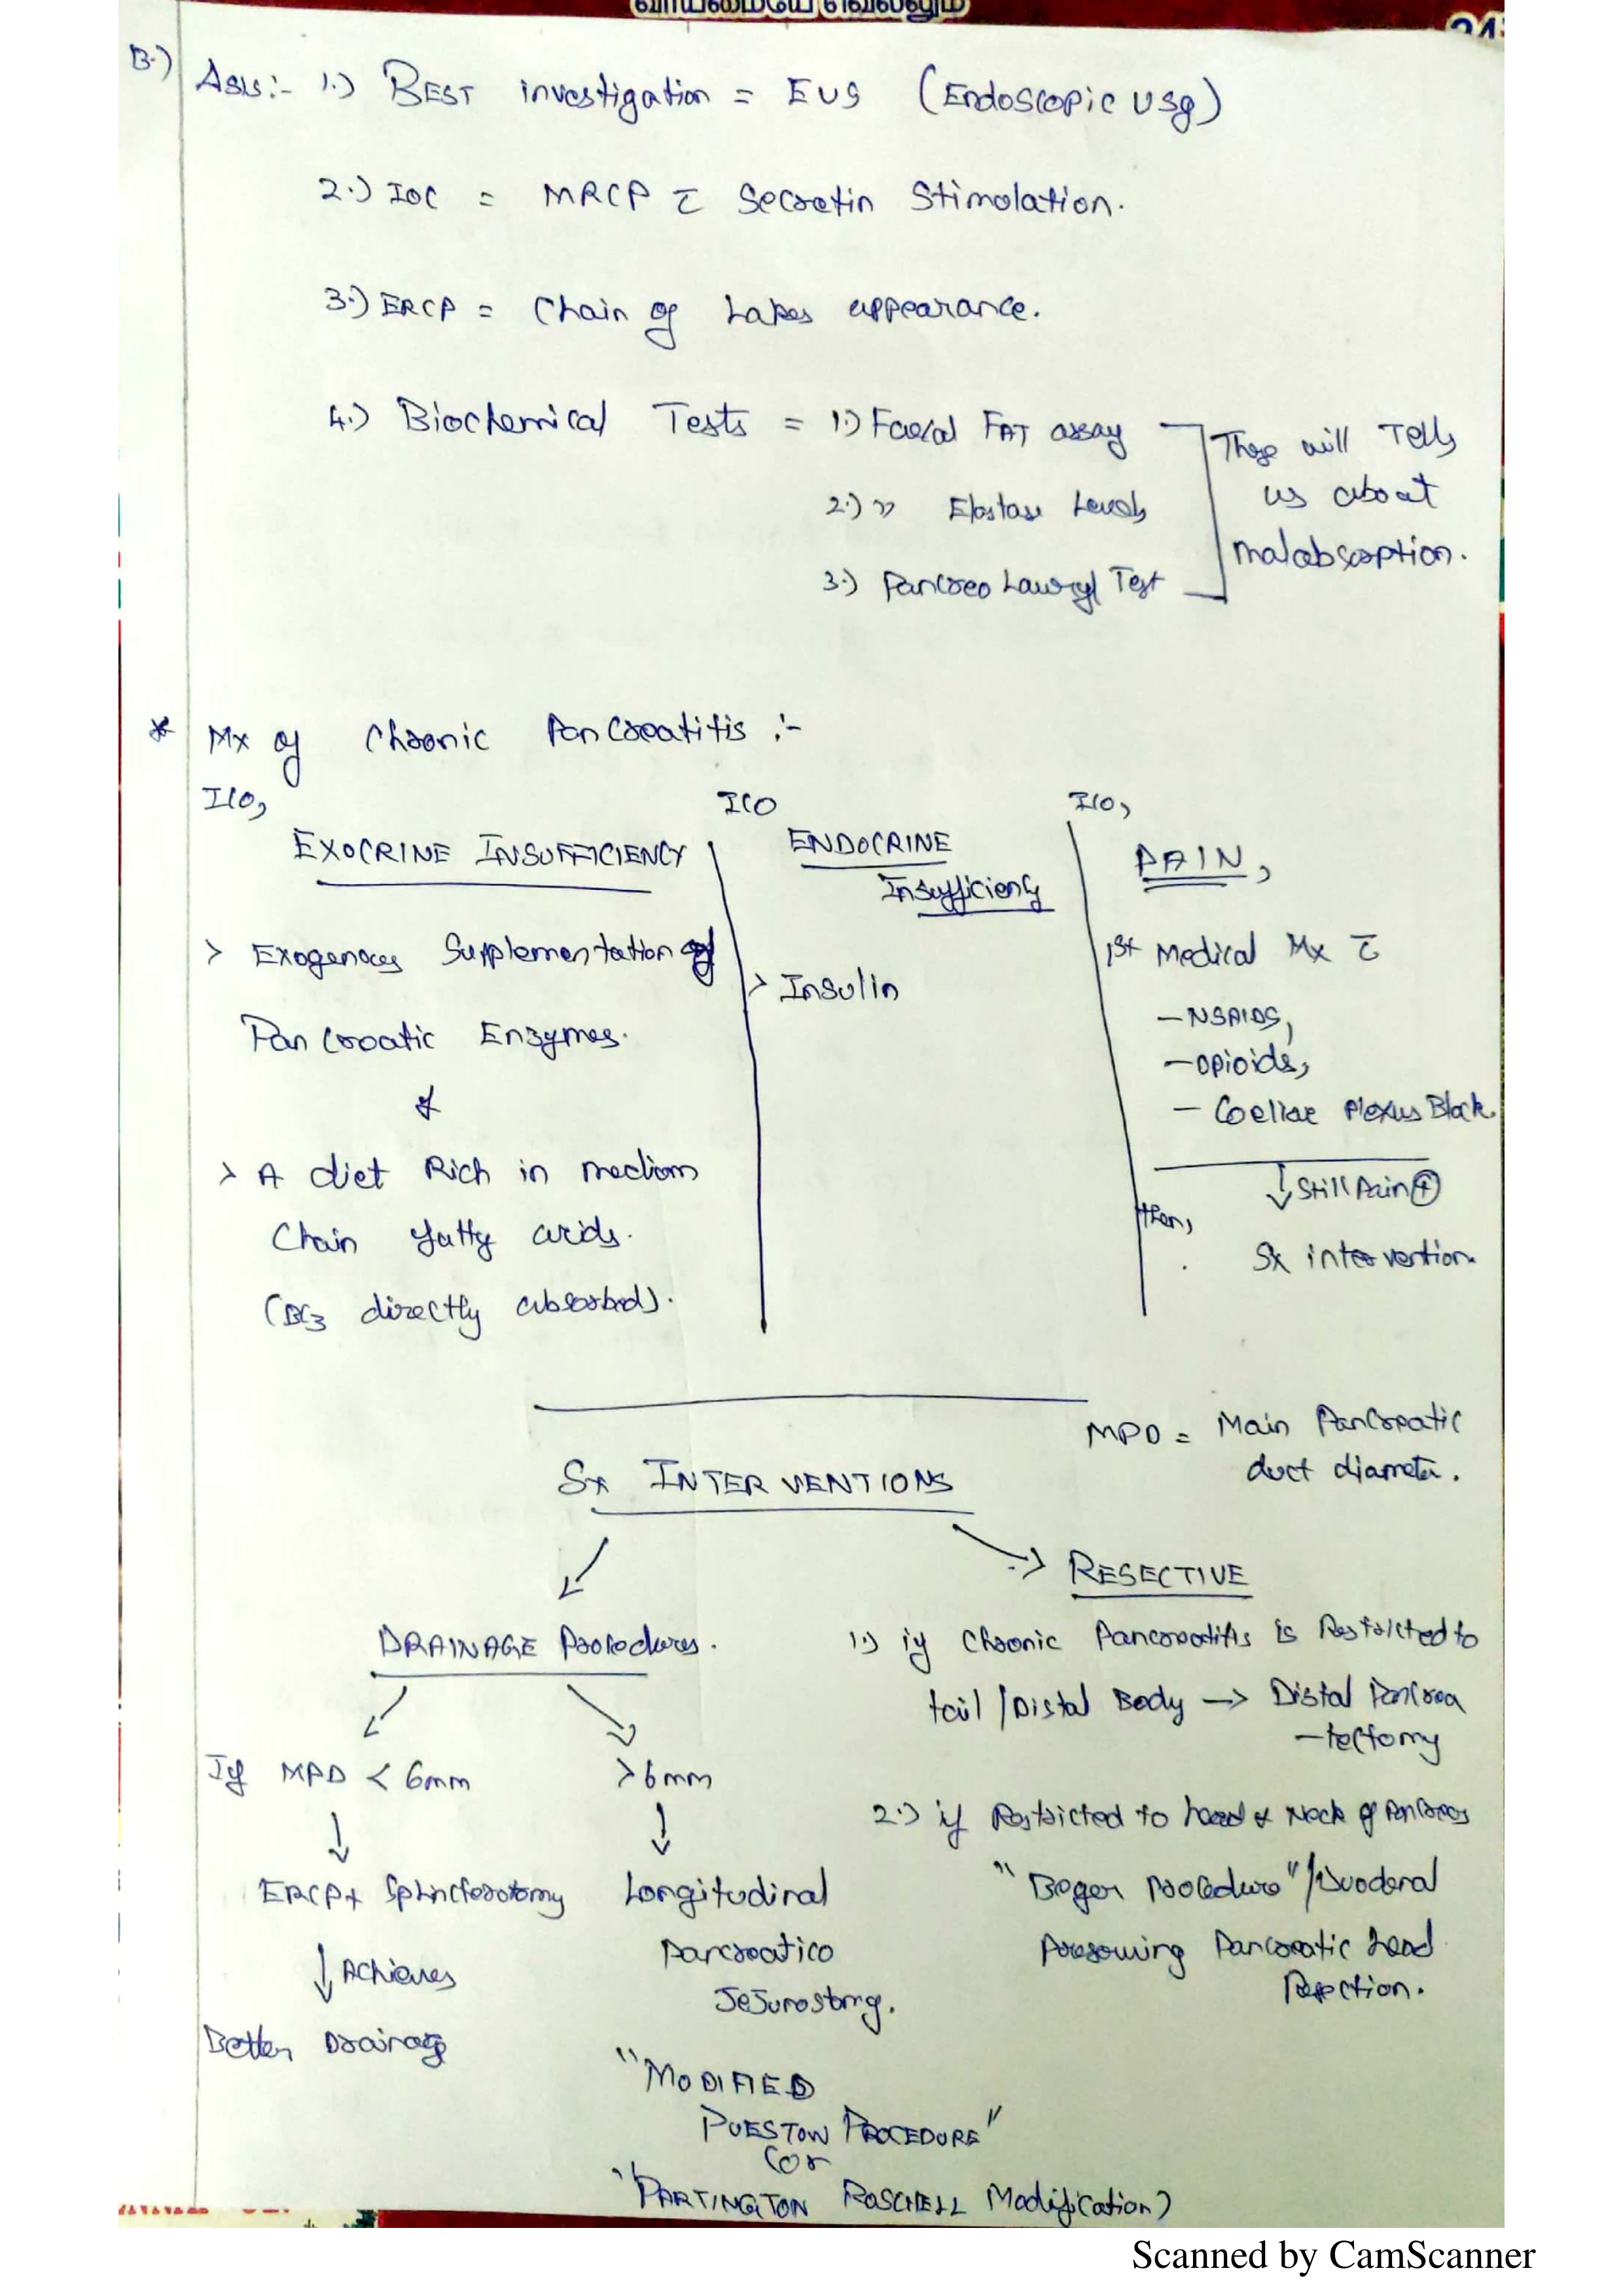 வாய்மையே வெல்லும்
24
B.) Ans:- 1.) BEST investigation = EUS (Endoscopic USg)
2.) IOC = MRCP c̄ Secretin Stimulation.
3.) ERCP = Chain of Lakes appearance.
4.) Biochemical Tests = 1.) Faecal FAT assay
2.) " Elastase Levels
3.) Pancreo Lauryl Test
These will Tells
us about
malabsorption.
* Mx of Chronic Pancreatitis :-
I/O,
EXOCRINE INSUFFICIENCY
> Exogenous Supplementation of
Pancreatic Enzymes.
&
> A diet Rich in medium
Chain fatty acids.
(BCZ directly absorbed).
I/O
ENDOCRINE
Insufficiency
> Insulin
I/O,
PAIN,
1st Medical Mx c̄
- NSAIDS,
- Opioids,
- Coeliac Plexus Block.
↓ Still Pain ⊕
then,
Sx intervention
MPD = Main Pancreatic
duct diameter.
Sx INTERVENTIONS
DRAINAGE Procedures.
If MPD < 6mm
↓
ERCP + Sphincterotomy
↓ Achieves
Better Drainage
>6mm
↓
Longitudinal
Pancreatico
Jejunostomy.
"MODIFIED
PUESTOW PROCEDURE"
(or
"PARTINGTON ROSCHELL Modification)
RESECTIVE
1.) if Chronic Pancreatitis is Restricted to
tail / Distal Body → Distal Pancrea
-tectomy
2.) if Restricted to head & Neck of Pancreas
"Beger Procedure" / Duodenal
Preserving Pancreatic head
Resection.
Scanned by CamScanner